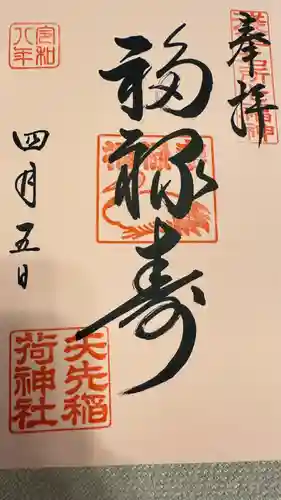 奉拝
福禄寿
令和八年
四月五日
矢先稲荷神社